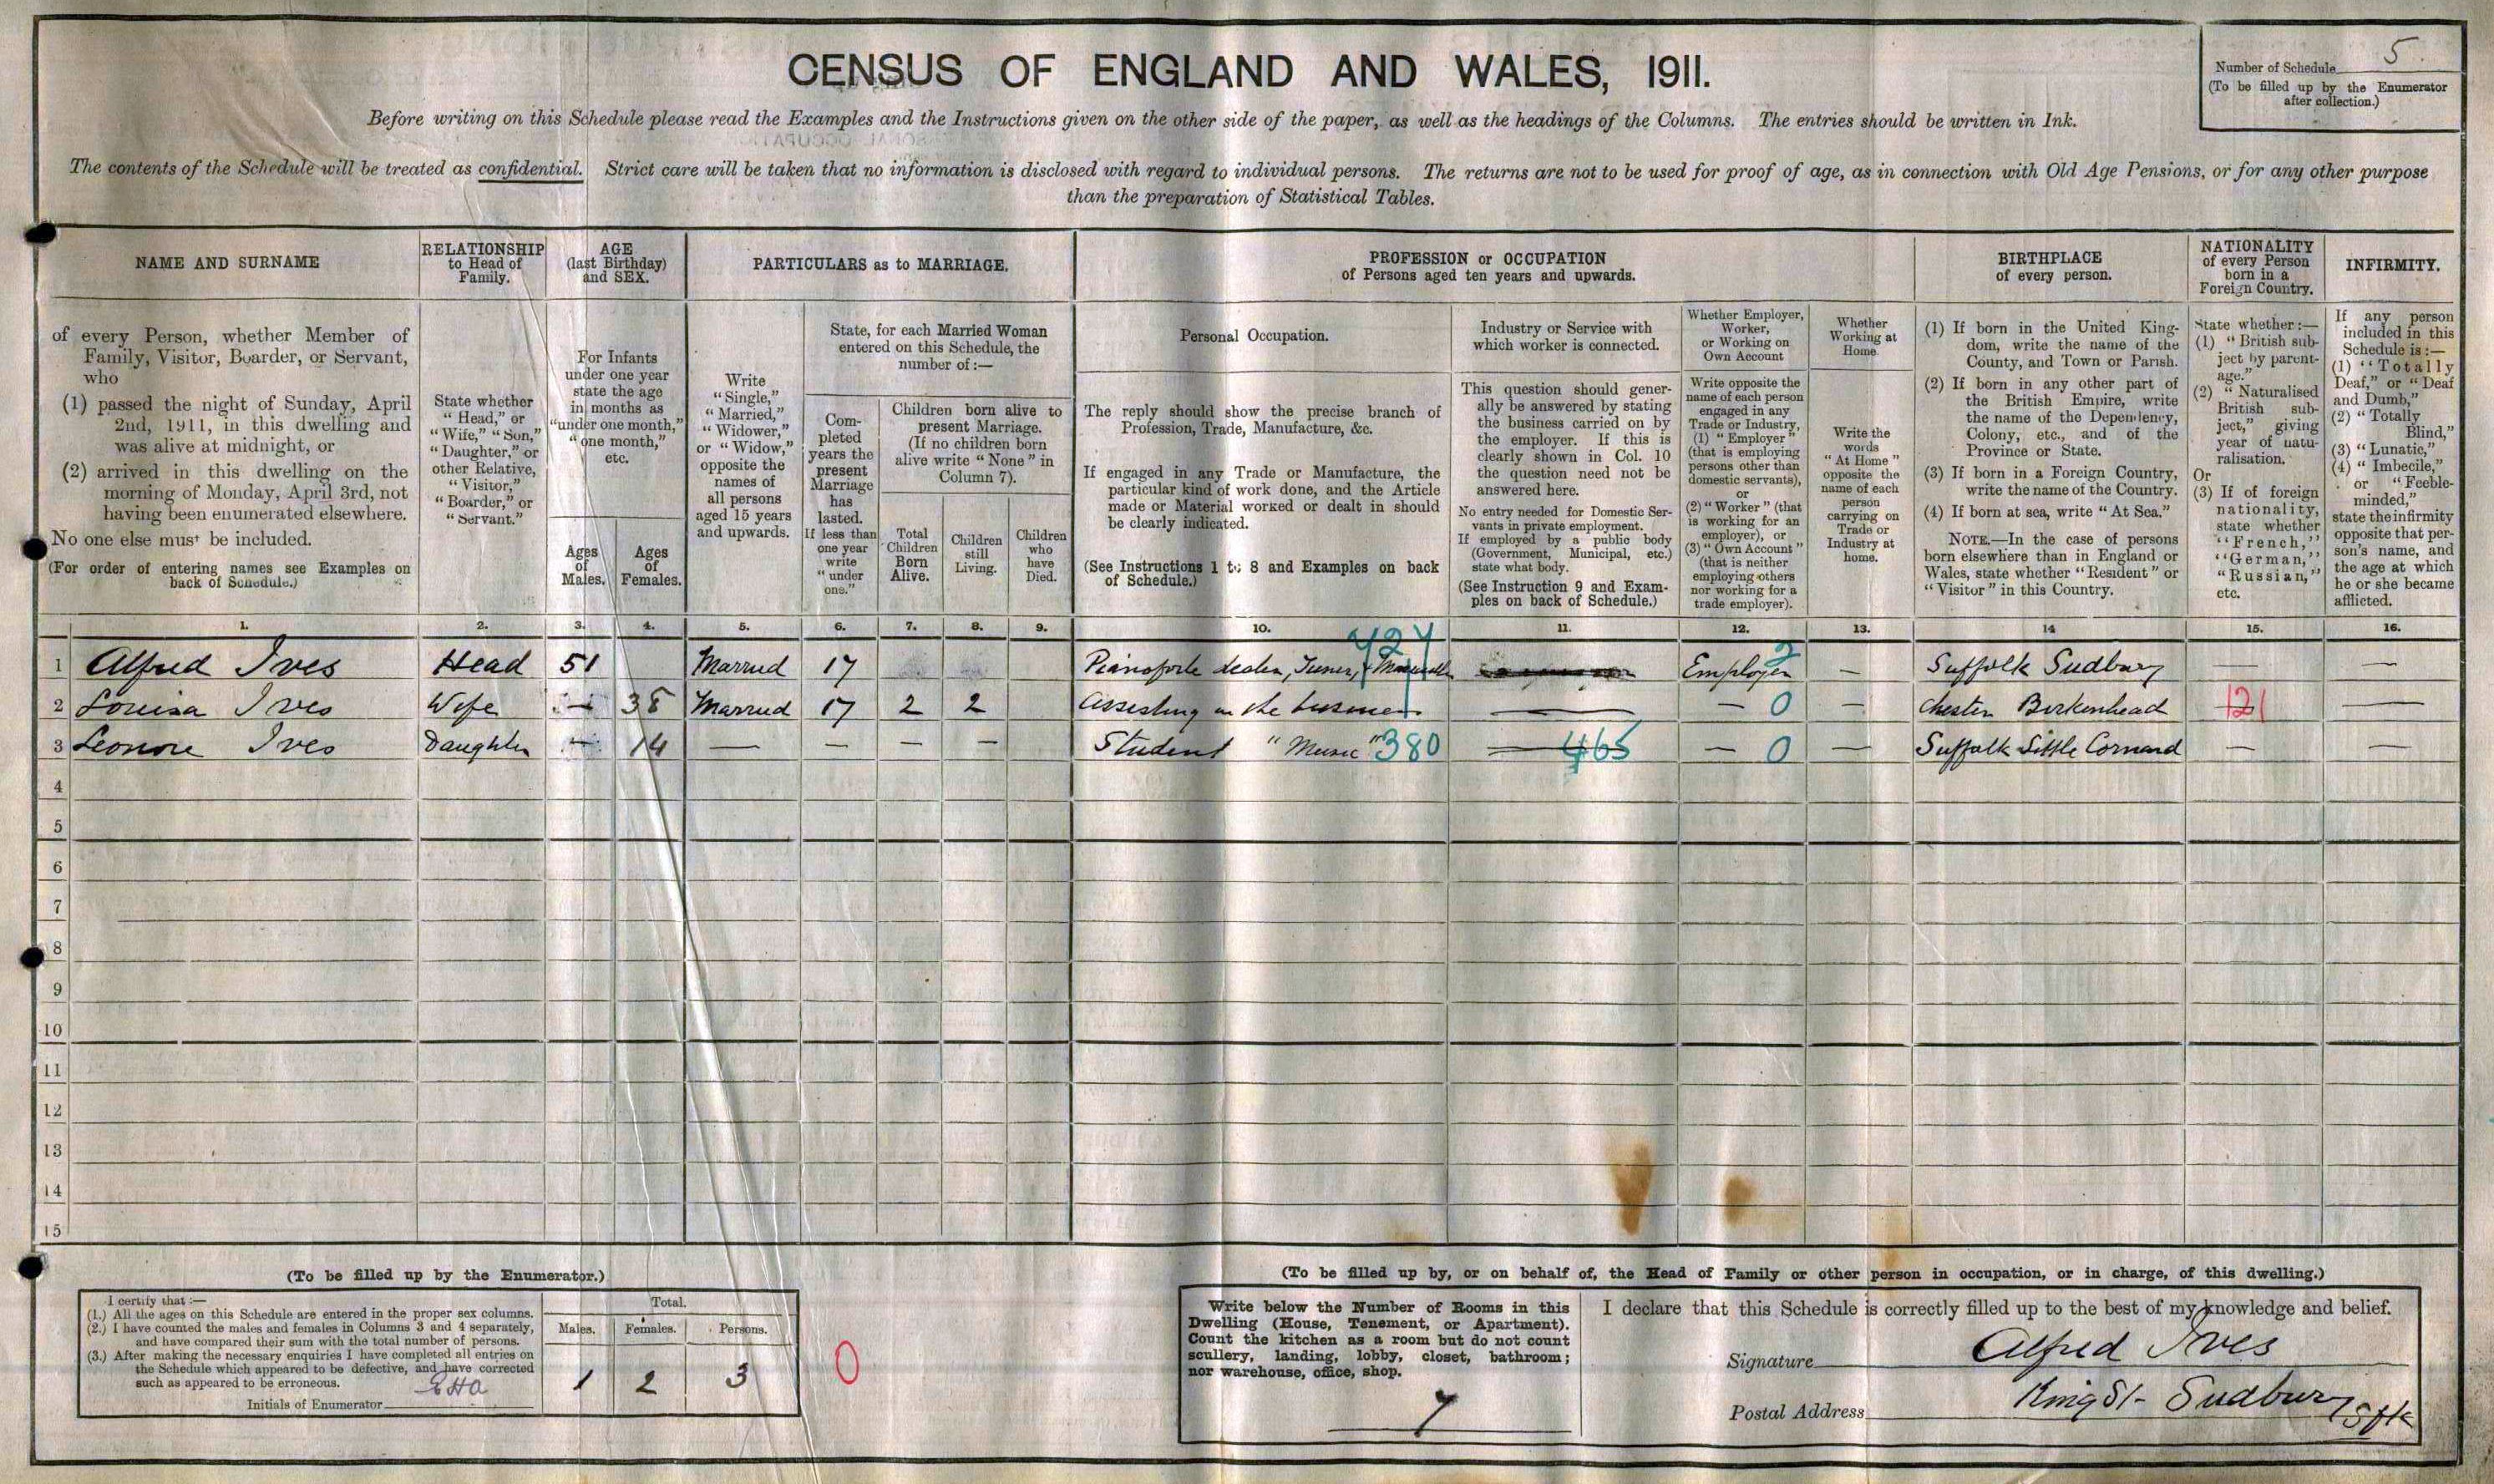 CENSUS OF ENGLAND AND WALES, 1911.
Number of Schedule 5.
(To be filled up by the Enumerator
after collection.)
Before writing on this Schedule please read the Examples and the Instructions given on the other side of the paper, as well as the headings of the Columns. The entries should be written in Ink.
The contents of the Schedule will be treated as confidential. Strict care will be taken that no information is disclosed with regard to individual persons. The returns are not to be used for proof of age, as in connection with Old Age Pensions, or for any other purpose
than the preparation of Statistical Tables.
NAME AND SURNAME
of every Person, whether Member of
Family, Visitor, Boarder, or Servant,
who
(1) passed the night of Sunday, April
2nd, 1911, in this dwelling and
was alive at midnight, or
(2) arrived in this dwelling on the
morning of Monday, April 3rd, not
having been enumerated elsewhere.
No one else must be included.
(For order of entering names see Examples on
back of Schedule.)
RELATIONSHIP
to Head of
Family.
State whether
"Head," or
"Wife," "Son,"
"Daughter," or
other Relative,
"Visitor,"
"Boarder," or
"Servant."
AGE
(last Birthday)
and SEX.
For Infants
under one year
state the age
in months as
"under one month,"
"one month,"
etc.
Ages
of
Males.
Ages
of
Females.
PARTICULARS as to MARRIAGE.
Write
"Single,"
"Married,"
"Widower,"
or "Widow,"
opposite the
names of
all persons
aged 15 years
and upwards.
State, for each Married Woman
entered on this Schedule, the
number of:—
Com-
pleted
years the
present
Marriage
has
lasted.
If less than
one year
write
"under
one."
Children born alive to
present Marriage.
(If no children born
alive write "None" in
Column 7).
Total
Children
Born
Alive.
Children
still
Living.
Children
who
have
Died.
PROFESSION or OCCUPATION
of Persons aged ten years and upwards.
Personal Occupation.
The reply should show the precise branch of
Profession, Trade, Manufacture, &c.
If engaged in any Trade or Manufacture, the
particular kind of work done, and the Article
made or Material worked or dealt in should
be clearly indicated.
(See Instructions 1 to 8 and Examples on back
of Schedule.)
Industry or Service with
which worker is connected.
This question should gener-
ally be answered by stating
the business carried on by
the employer. If this is
clearly shown in Col. 10
the question need not be
answered here.
No entry needed for Domestic Ser-
vants in private employment.
If employed by a public body
(Government, Municipal, etc.)
state what body.
(See Instruction 9 and Exam-
ples on back of Schedule.)
Whether Employer,
Worker,
or Working on
Own Account
Write opposite the
name of each person
engaged in any
Trade or Industry,
(1) "Employer"
(that is employing
persons other than
domestic servants),
or
(2) "Worker" (that
is working for an
employer), or
(3) "Own Account"
(that is neither
employing others
nor working for a
trade employer).
Whether
Working at
Home.
Write the
words
"At Home"
opposite the
name of each
person
carrying on
Trade or
Industry at
home.
BIRTHPLACE
of every person.
(1) If born in the United King-
dom, write the name of the
County, and Town or Parish.
(2) If born in any other part of
the British Empire, write
the name of the Dependency,
Colony, etc., and of the
Province or State.
(3) If born in a Foreign Country,
write the name of the Country.
(4) If born at sea, write "At Sea."
NOTE.—In the case of persons
born elsewhere than in England or
Wales, state whether "Resident" or
"Visitor" in this Country.
NATIONALITY
of every Person
born in a
Foreign Country.
State whether:—
(1) "British sub-
ject by parent-
age."
(2) "Naturalised
British sub-
ject," giving
year of natu-
ralisation.
Or
(3) If of foreign
nationality,
state whether
"French,"
"German,"
"Russian,"
etc.
INFIRMITY.
If any person
included in this
Schedule is:—
(1) "Totally
Deaf," or "Deaf
and Dumb,"
(2) "Totally
Blind,"
(3) "Lunatic,"
(4) "Imbecile,"
or "Feeble-
minded,"
state the infirmity
opposite that per-
son's name, and
the age at which
he or she became
afflicted.
1. 2. 3. 4. 5. 6. 7. 8. 9. 10. 11. 12. 13. 14 15. 16.
1 Alfred Ives Head 51 Married 17 Pianoforte dealer, Tuner, & 427 Employer 2 — Suffolk Sudbury — —
2 Louisa Ives Wife — 38 Married 17 2 2 Assisting in the business — — 0 Chester Birkenhead 121 —
3 Leonore Ives Daughter — 14 — — — — Student "Music" 380 465 — 0 — Suffolk Little Cornard — —
4
5
6
7
8
9
10
11
12
13
14
15
(To be filled up by the Enumerator.)
I certify that:—
(1.) All the ages on this Schedule are entered in the proper sex columns.
(2.) I have counted the males and females in Columns 3 and 4 separately,
and have compared their sum with the total number of persons.
(3.) After making the necessary enquiries I have completed all entries on
the Schedule which appeared to be defective, and have corrected
such as appeared to be erroneous.
Initials of Enumerator EHA
Total.
Males. Females. Persons.
1 2 3
0
(To be filled up by, or on behalf of, the Head of Family or other person in occupation, or in charge, of this dwelling.)
Write below the Number of Rooms in this
Dwelling (House, Tenement, or Apartment).
Count the kitchen as a room but do not count
scullery, landing, lobby, closet, bathroom;
nor warehouse, office, shop.
7
I declare that this Schedule is correctly filled up to the best of my knowledge and belief.
Signature Alfred Ives
Postal Address King St- Sudbury Sffk